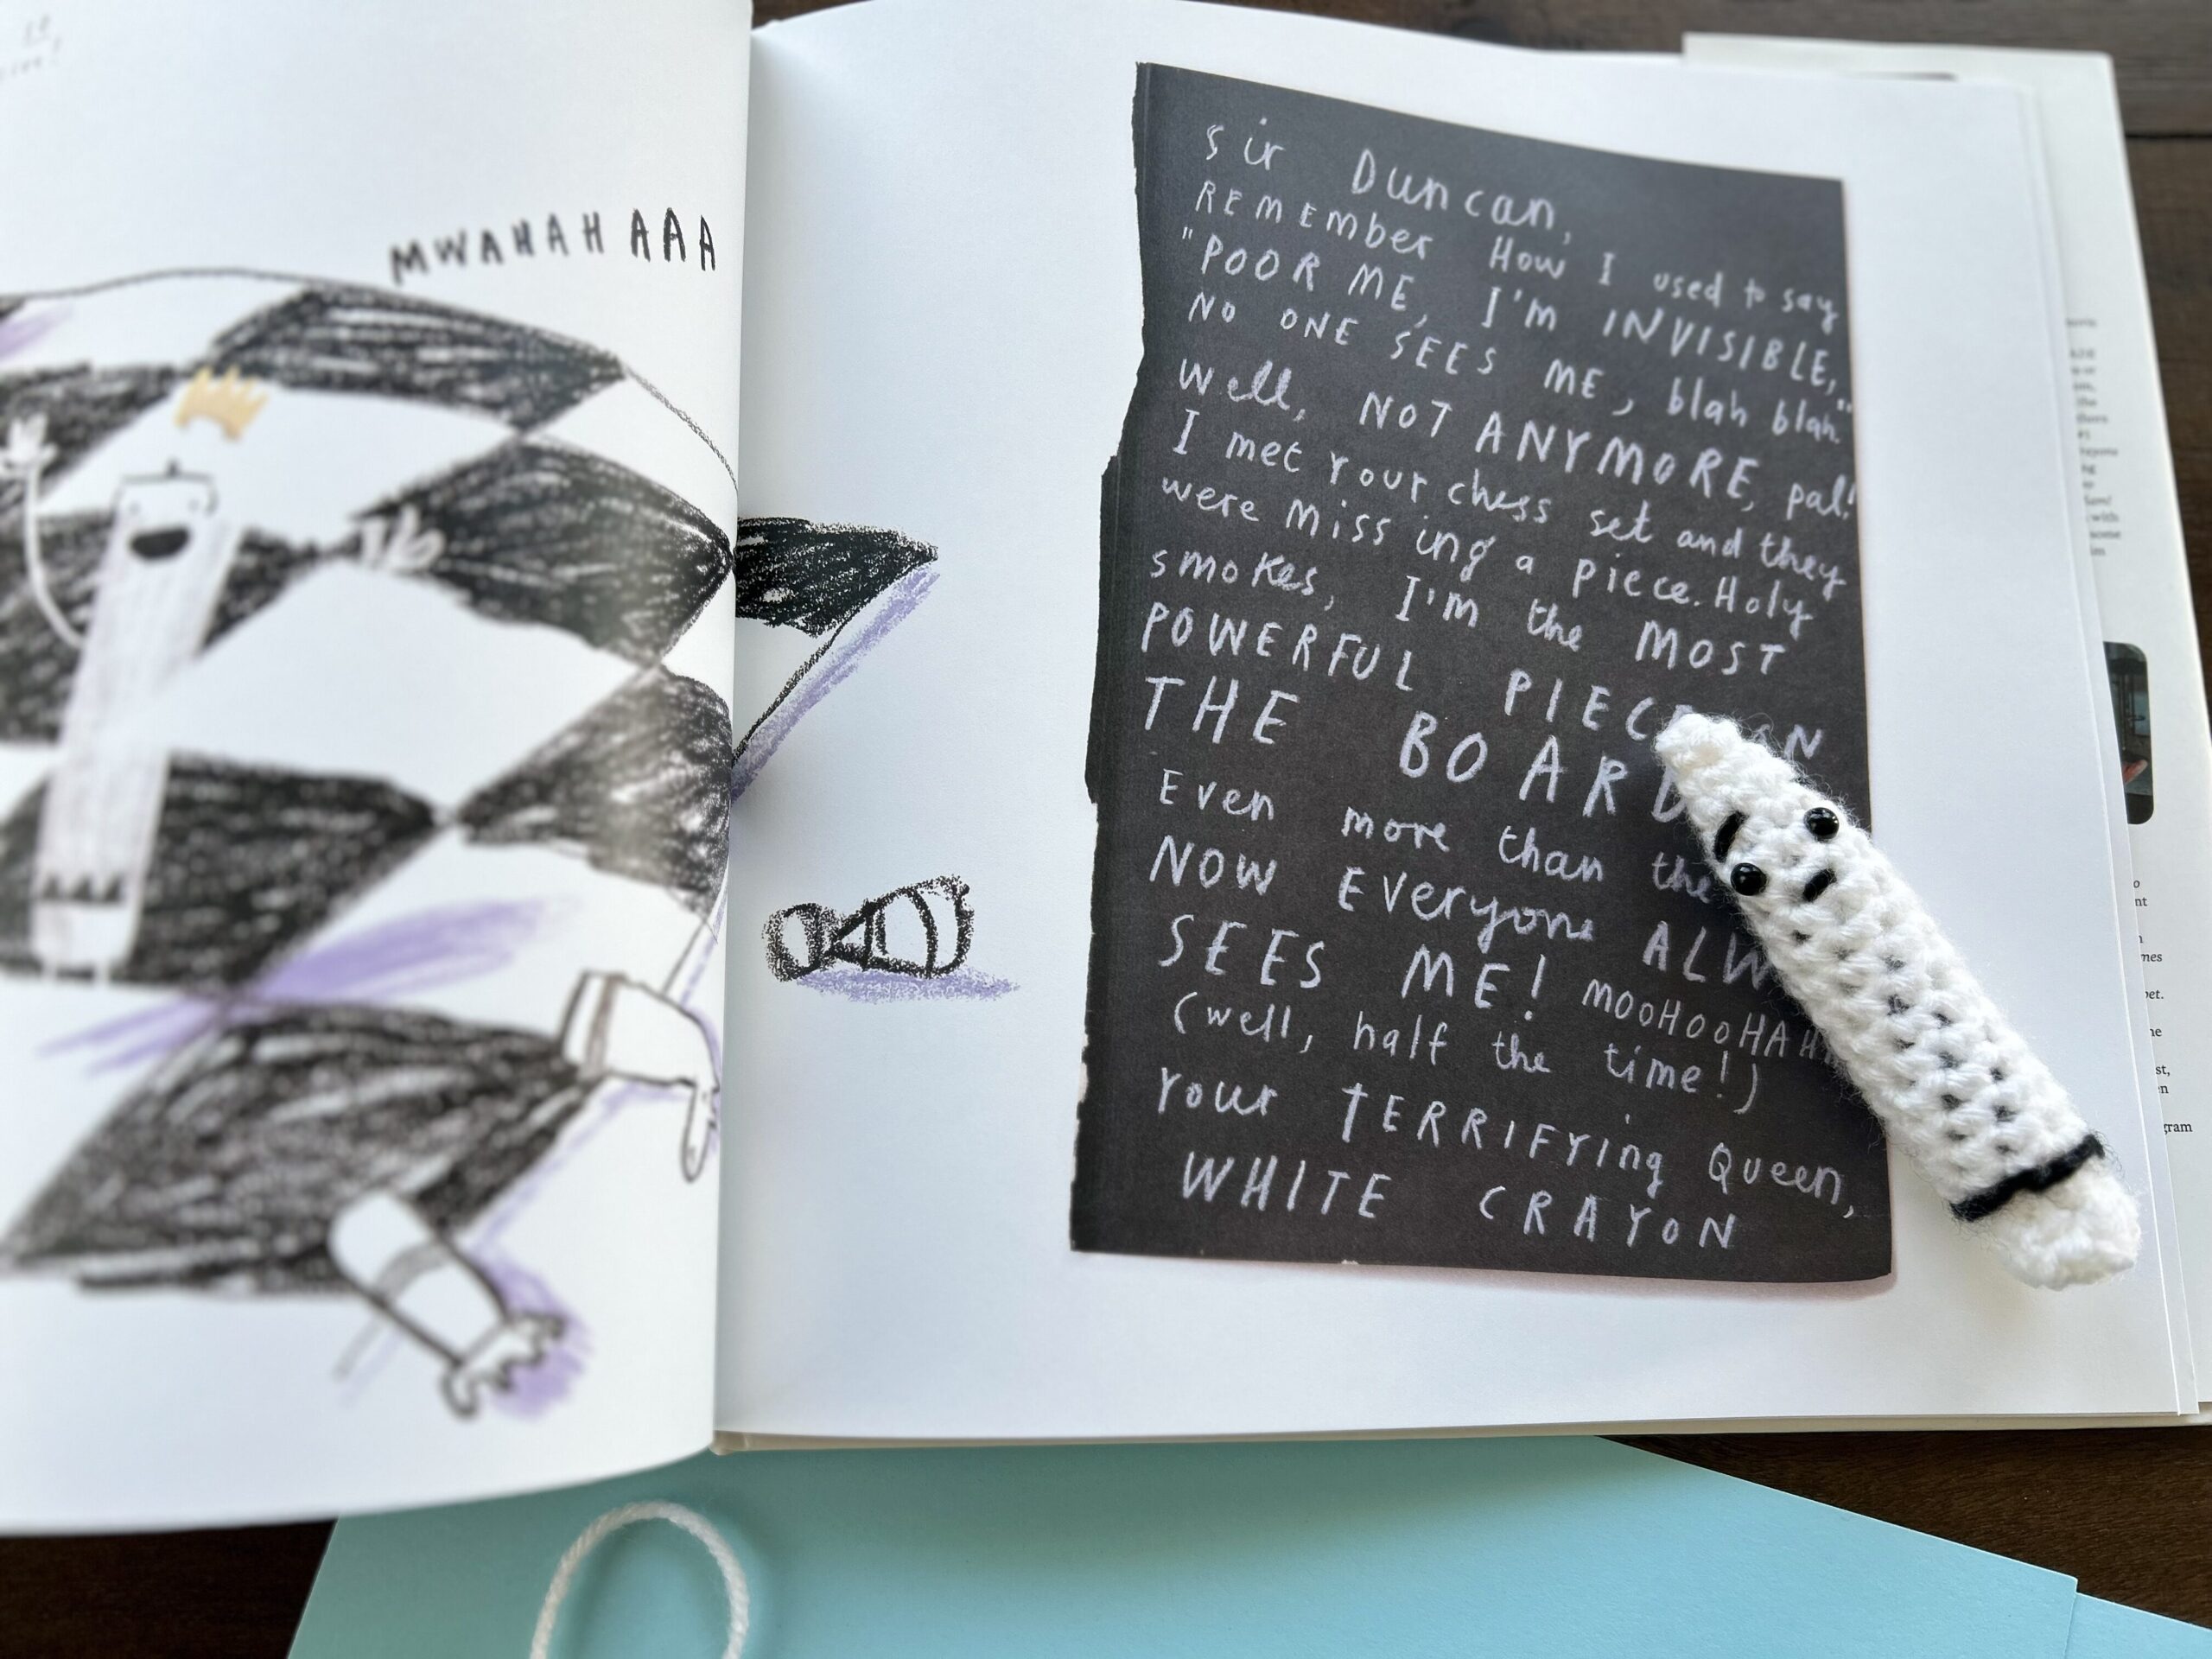 MWAHAHAAA
Sir Duncan,
REMEMber How I used to say
"POOR ME, I'm INVISIBLE,
NO ONE SEES ME, blah blah."
Well, NOT ANYMORE, pal!
I met your chess set and they
were missing a piece. Holy
smokes, I'm the MOST
POWERFUL
THE BOARD
Even more than the
NOW EVeryone
SEES ME! MOOHOOHAH
(well, half the time!)
Your TERRIFYing Queen,
WHITE CRAYON